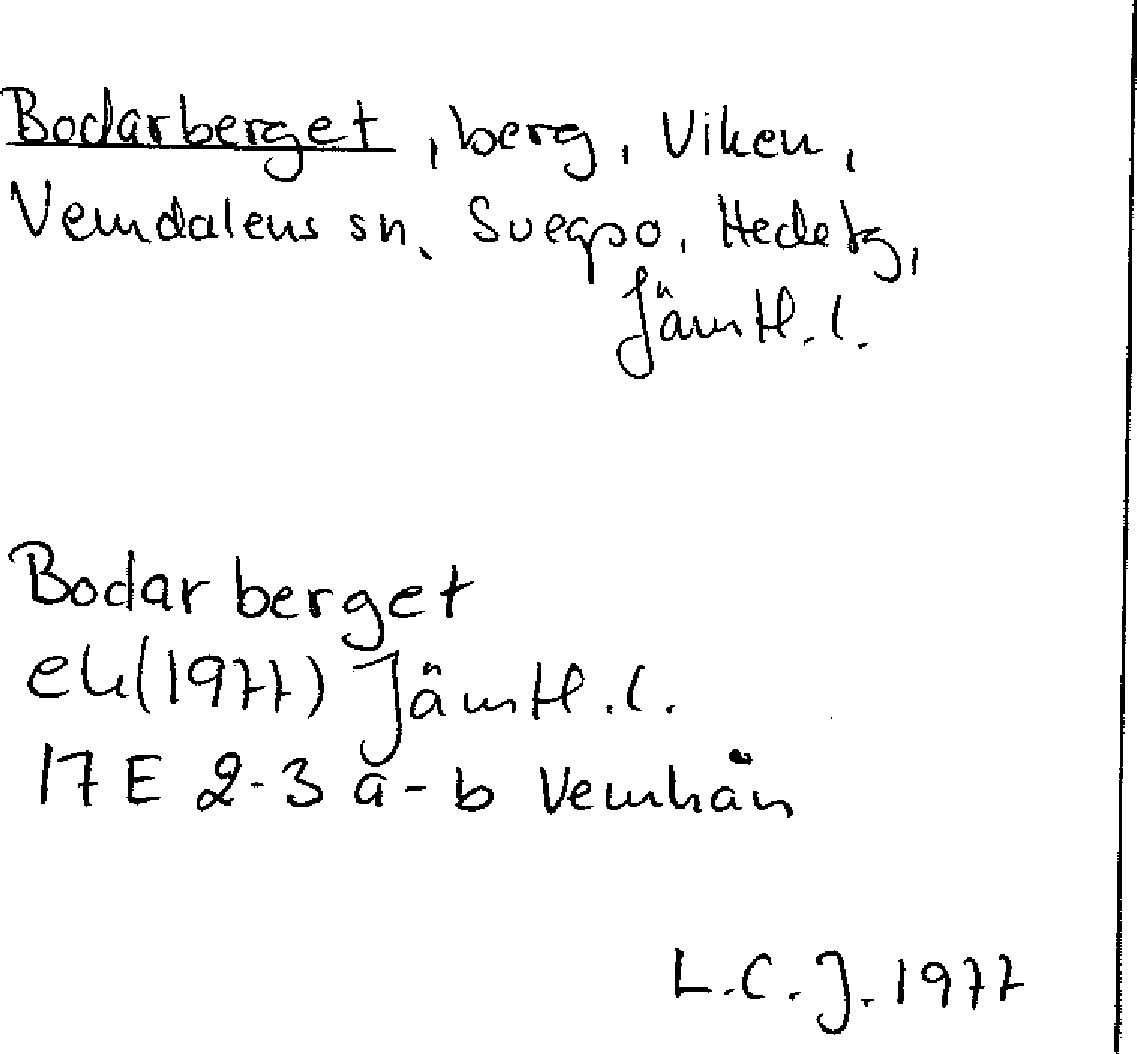 Bodarberget, berg, Viken,
Vemdalens sn, Svegpo, Hedetg,
Jämtl.l.
Bodarberget
ek(1977) Jämtl.l.
17 E 2-3 a-b Vemhån
L.C.J. 1977